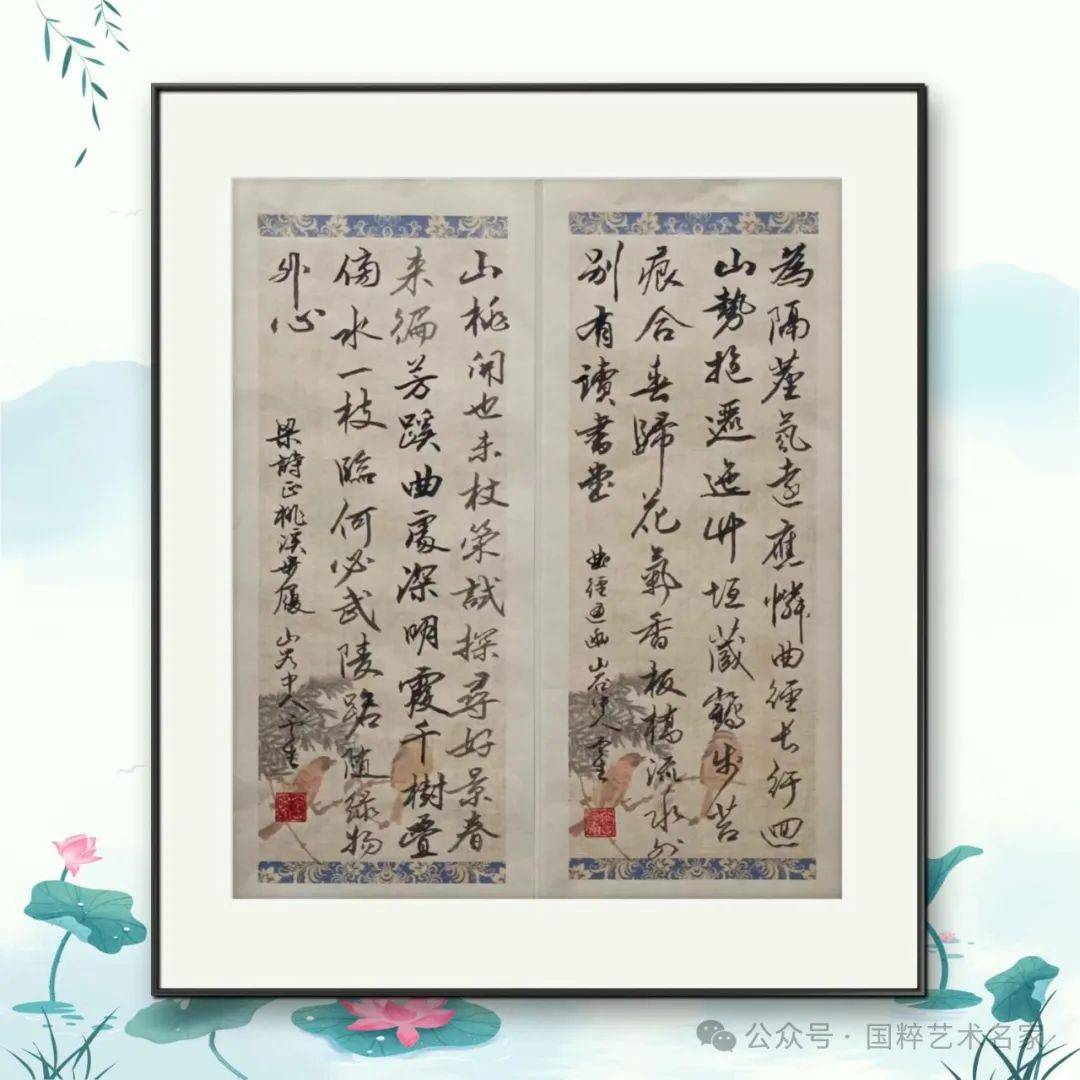 為隔塵氛遠應憐曲徑長紆迴
山勢抱邐迤竹垣藏鶴步苔
痕合春歸花氣香板橋流水外
別有讀書堂
曲徑通幽山谷中人
山桃開也未杖策試探尋好景春
来徧芳蹊曲處深明霞千樹疊
傍水一枝臨何必武陵路隨緣物
外心
梁詩正桃溪毋履山谷中人
公众号·国粹艺术名家